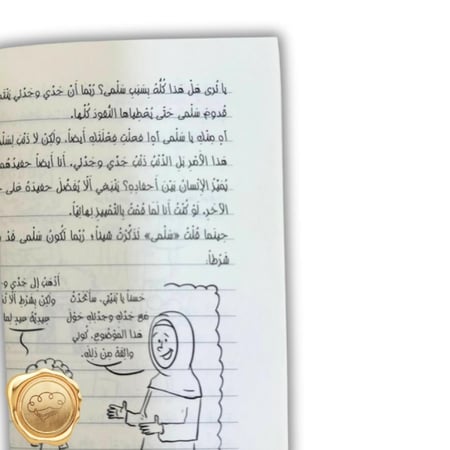 يا تُرى هَلْ هَذا كُلُّهُ بِسَبَبِ سَلْمى؟ رُبَّما أَنَّ جَدّي وجَدَّتي
قُدومَ سَلْمى حَتّى يُعْطِياها النُّقودَ كُلَّها.
آهِ مِنْكِ يا سَلْمى آه! فَعَلْتِ فِعْلَتَكِ أَيْضاً. ولَكِنْ لا ذَنْبَ
هَذا الأَمْرِ بَلِ الذَّنْبُ ذَنْبُ جَدّي وجَدَّتي. أَنا أَيْضاً
يُمَيِّزُ الإِنْسانُ بَيْنَ أَحْفادِهِ؟ يَنْبَغي أَلّا يُفَضِّلَ حَفيدَهُ عَلى
الآخَرِ. لَوْ كُنْتُ أَنا لَما قُمْتُ بِالتَّمْييزِ نِهائِيّاً.
حينَما قُلْتُ «سَلْمى» تَذَكَّرْتُ شَيْئاً؛ رُبَّما تَكُونُ سَلْمى قَدْ
شَرْطاً:
حَسَناً يا بُنَيَّتي. سَأَتَحَدَّثُ
مَعَ جَدِّكِ وجَدَّتِكِ حَوْلَ
هَذا المَوْضوعِ. كوني
واثِقَةً مِنْ ذَلِكَ.
أَذْهَبُ إِلى جَدّي
ولَكِنْ بِشَرْطِ أَلّا